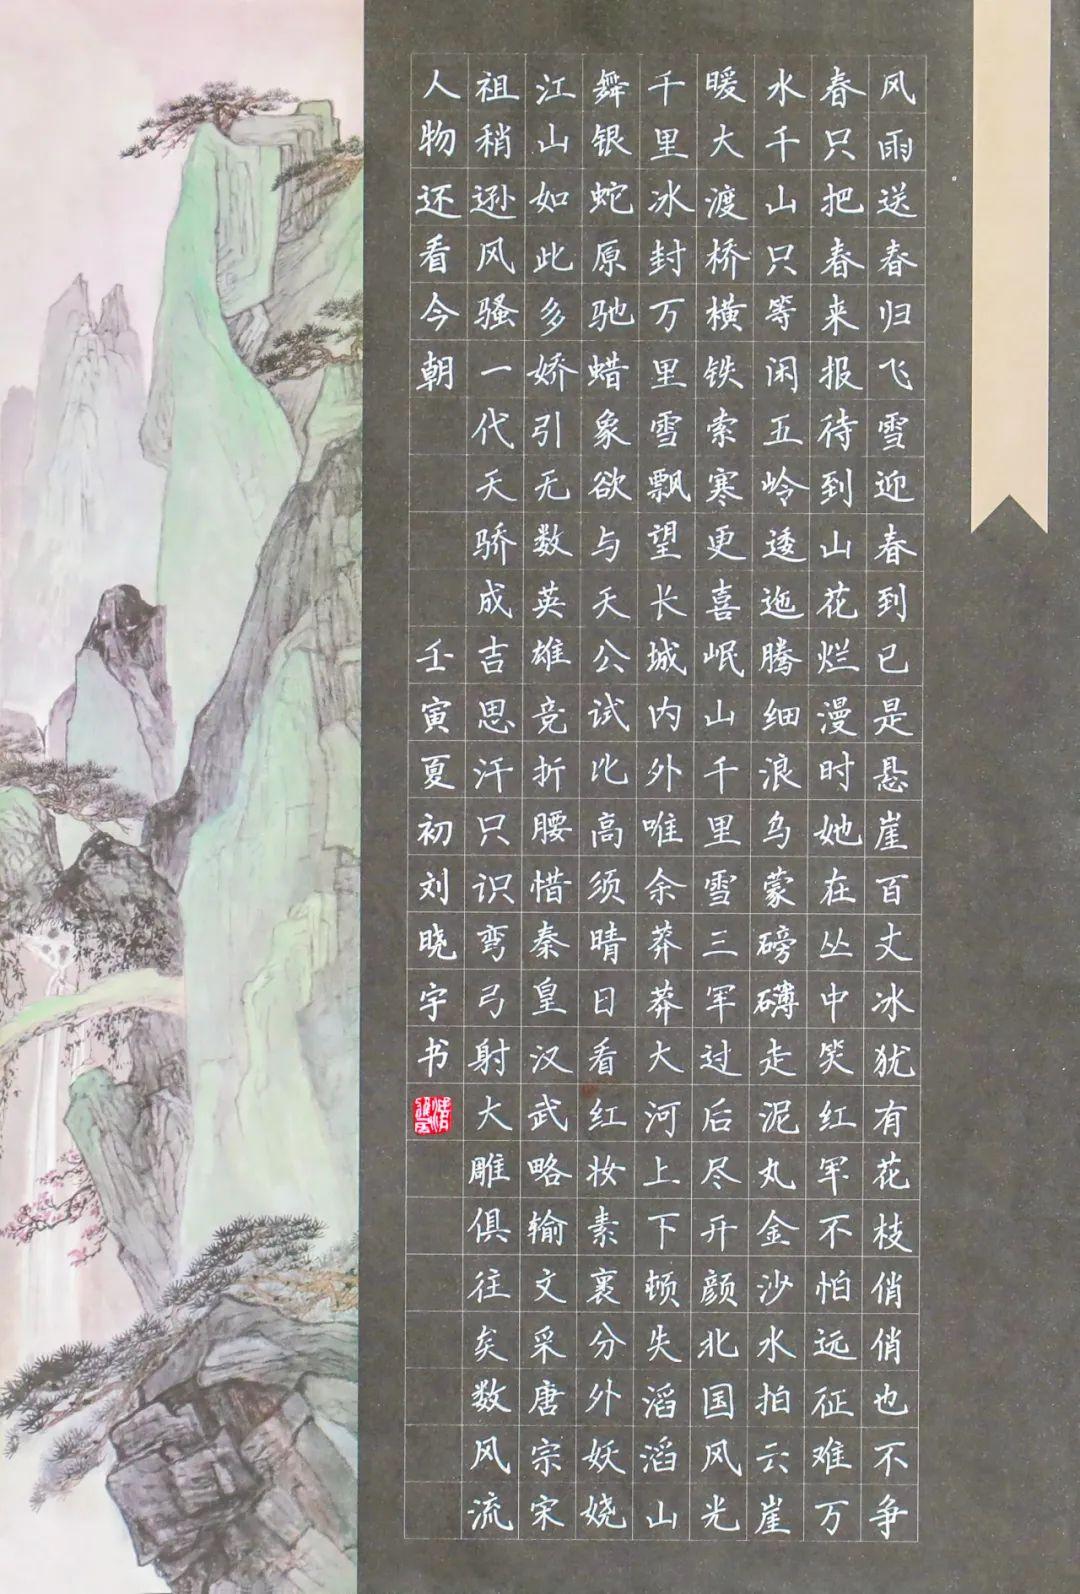 风雨送春归飞雪迎春到已是悬崖百丈冰犹有花枝俏俏也不争
春只把春来报待到山花烂漫时她在丛中笑红军不怕远征难万
水千山只等闲五岭逶迤腾细浪乌蒙磅礴走泥丸金沙水拍云崖
暖大渡桥横铁索寒更喜岷山千里雪三军过后尽开颜北国风光
千里冰封万里雪飘望长城内外唯余莽莽大河上下顿失滔滔山
舞银蛇原驰蜡象欲与天公试比高须晴日看红妆素裹分外妖娆
江山如此多娇引无数英雄竞折腰惜秦皇汉武略输文采唐宗宋
祖稍逊风骚一代天骄成吉思汗只识弯弓射大雕俱往矣数风流
人物还看今朝
壬寅夏初刘晓宇书